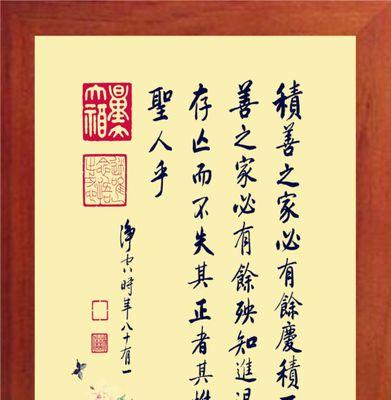 積善之家必有餘慶積
善之家必有餘殃知進
存亡而不失其正者其
聖人乎
淨空時年八十有一